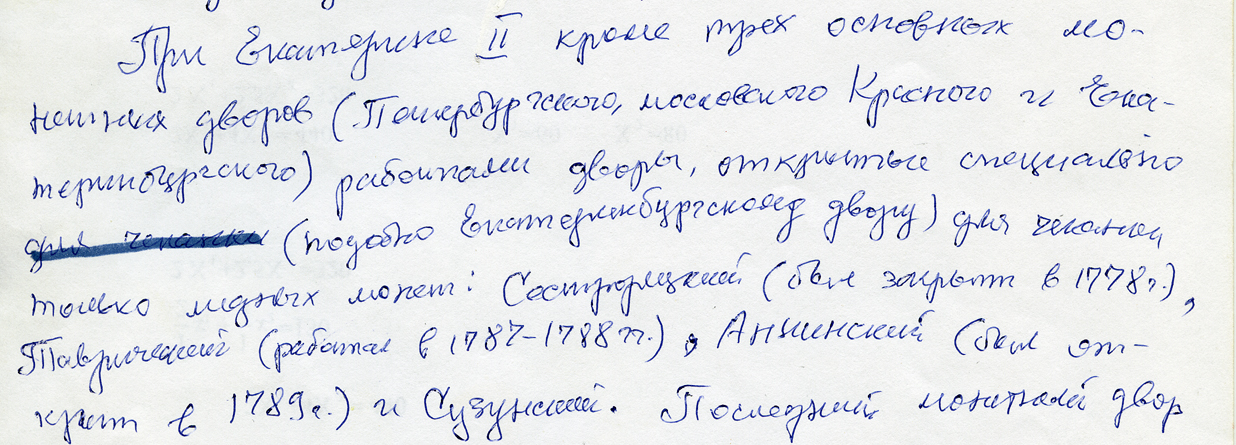 При Екатерине II кроме трех основных мо-
нетных дворов (Петербургского, московского Красного и Екa-
теринбургского) работали дворы, открытые специально
для чеканки (подобно Екатеринбургскому двору) для чеканки
только медных монет: Сестрорецкий (был закрыт в 1778г.),
Таврический (работал в 1787-1788гг.), Аннинский (был от-
крыт в 1789г.) и Сузунский. Последний монетный двор